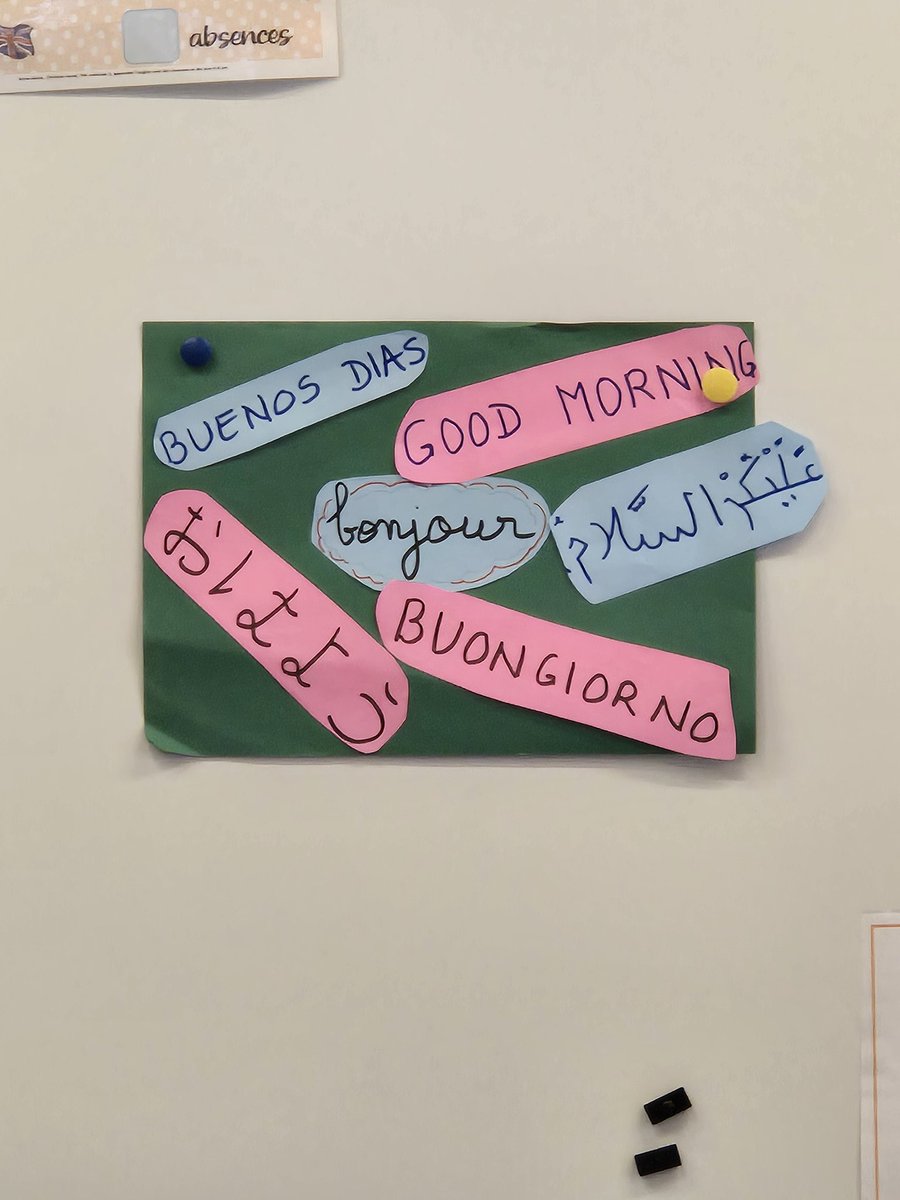 absences
BUENOS DIAS
GOOD MORNING
bonjour
عَلَيْكُمْ السَّلَامُ
おはよう
BUONGIORNO